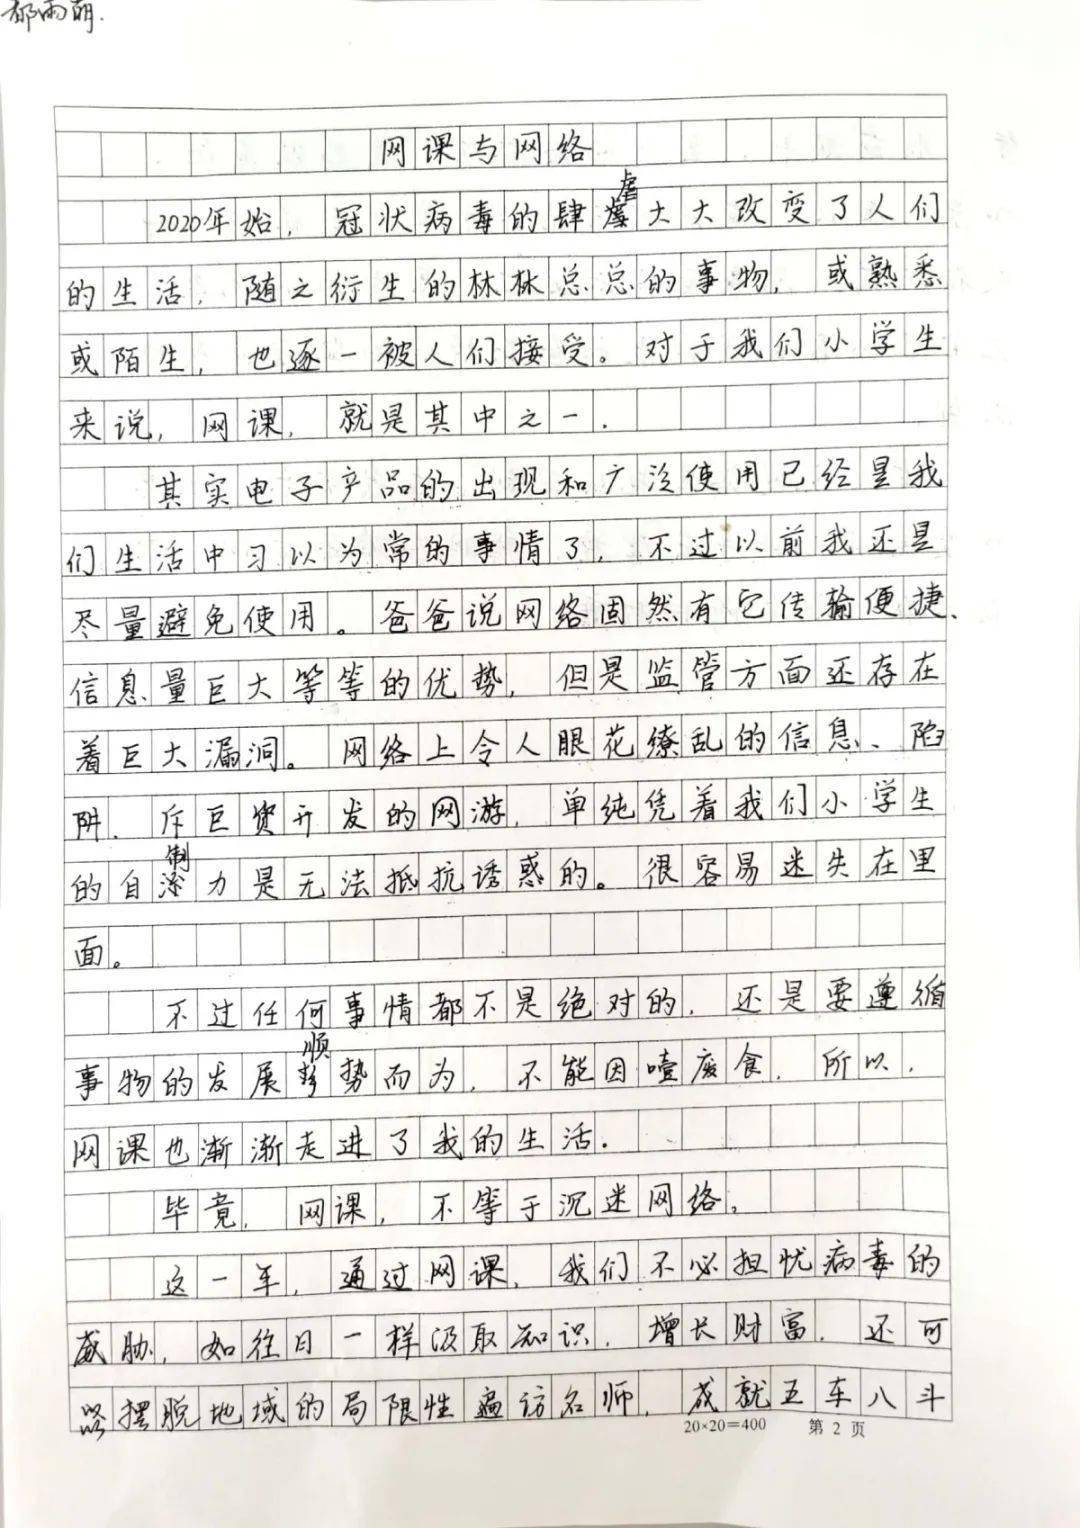 郁雨萌.
网课与网络
2020年始，冠状病毒的肆虐大大改变了人们
的生活，随之衍生的林林总总的事物，或熟悉
或陌生，也逐一被人们接受。对于我们小学生
来说，网课，就是其中之一.
其实电子产品的出现和广泛使用已经是我
们生活中习以为常的事情了，不过以前我还是
尽量避免使用。爸爸说网络固然有它传输便捷、
信息量巨大等等的优势，但是监管方面还存在
着巨大漏洞。网络上令人眼花缭乱的信息、陷
阱、斥巨资开发的网游，单纯凭着我们小学生
的自制力是无法抵抗诱惑的。很容易迷失在里
面。
不过任何事情都不是绝对的，还是要遵循
事物的发展顺势而为，不能因噎废食，所以，
网课也渐渐走进了我的生活.
毕竟，网课，不等于沉迷网络。
这一年，通过网课，我们不必担忧病毒的
威胁，如往日一样汲取知识，增长财富，还可
以摆脱地域的局限性遍访名师，成就五车八斗
20×20=400 第 2 页